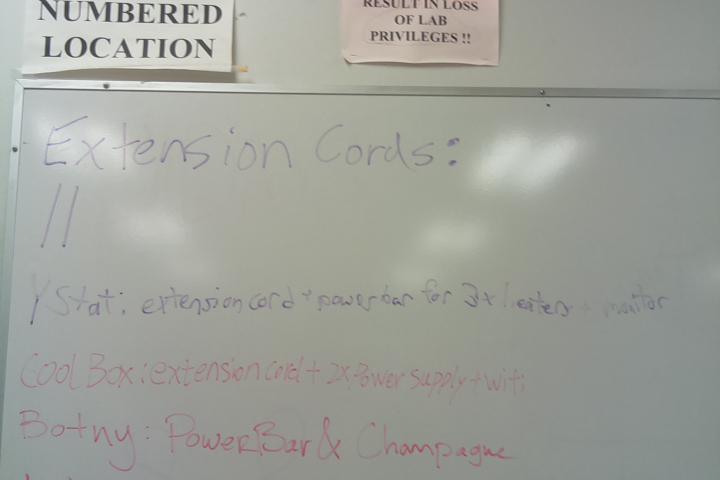 NUMBERED
LOCATION
RESULT IN LOSS
OF LAB
PRIVILEGES !!
Extension Cords:
||
YStat: extension cord + power bar for 3x heaters + monitor
Cool Box: extension cord + 2x Power supply + wifi
Botny: PowerBar & Champagne